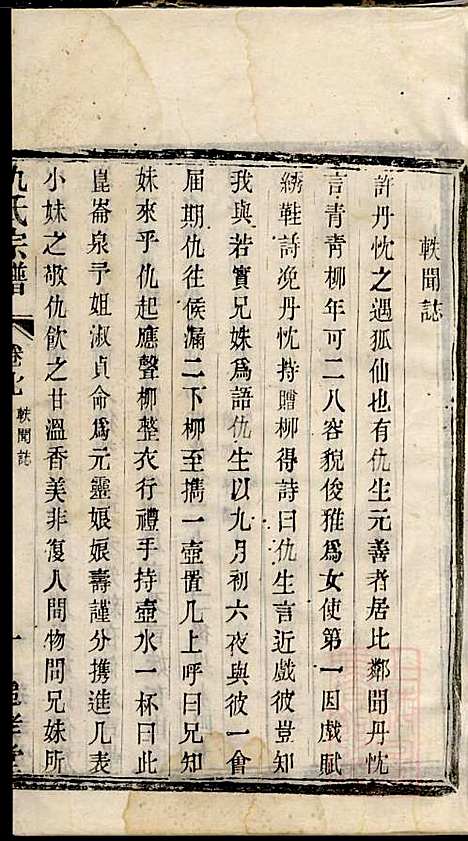 軼聞誌
許丹忱之遇狐仙也有仇生元善者居比鄰聞丹忱
言青青柳年可二八容貌俊雅爲女使第一因戲賦
綉鞋詩浼丹忱持贈柳得詩曰仇生言近戲彼豈知
我與若實兄妹爲語仇生以九月初六夜與彼一會
届期仇往候漏二下柳至擕一壺置几上呼曰兄知
妹來乎仇起應聲柳整衣行禮手持壺水一杯曰此
崑崙泉予姐淑貞命爲元靈娘娘壽謹分携進几表
小妹之敬仇飲之甘溫香美非復人間物問兄妹所
仇氏宗譜
卷七
軼聞誌
一